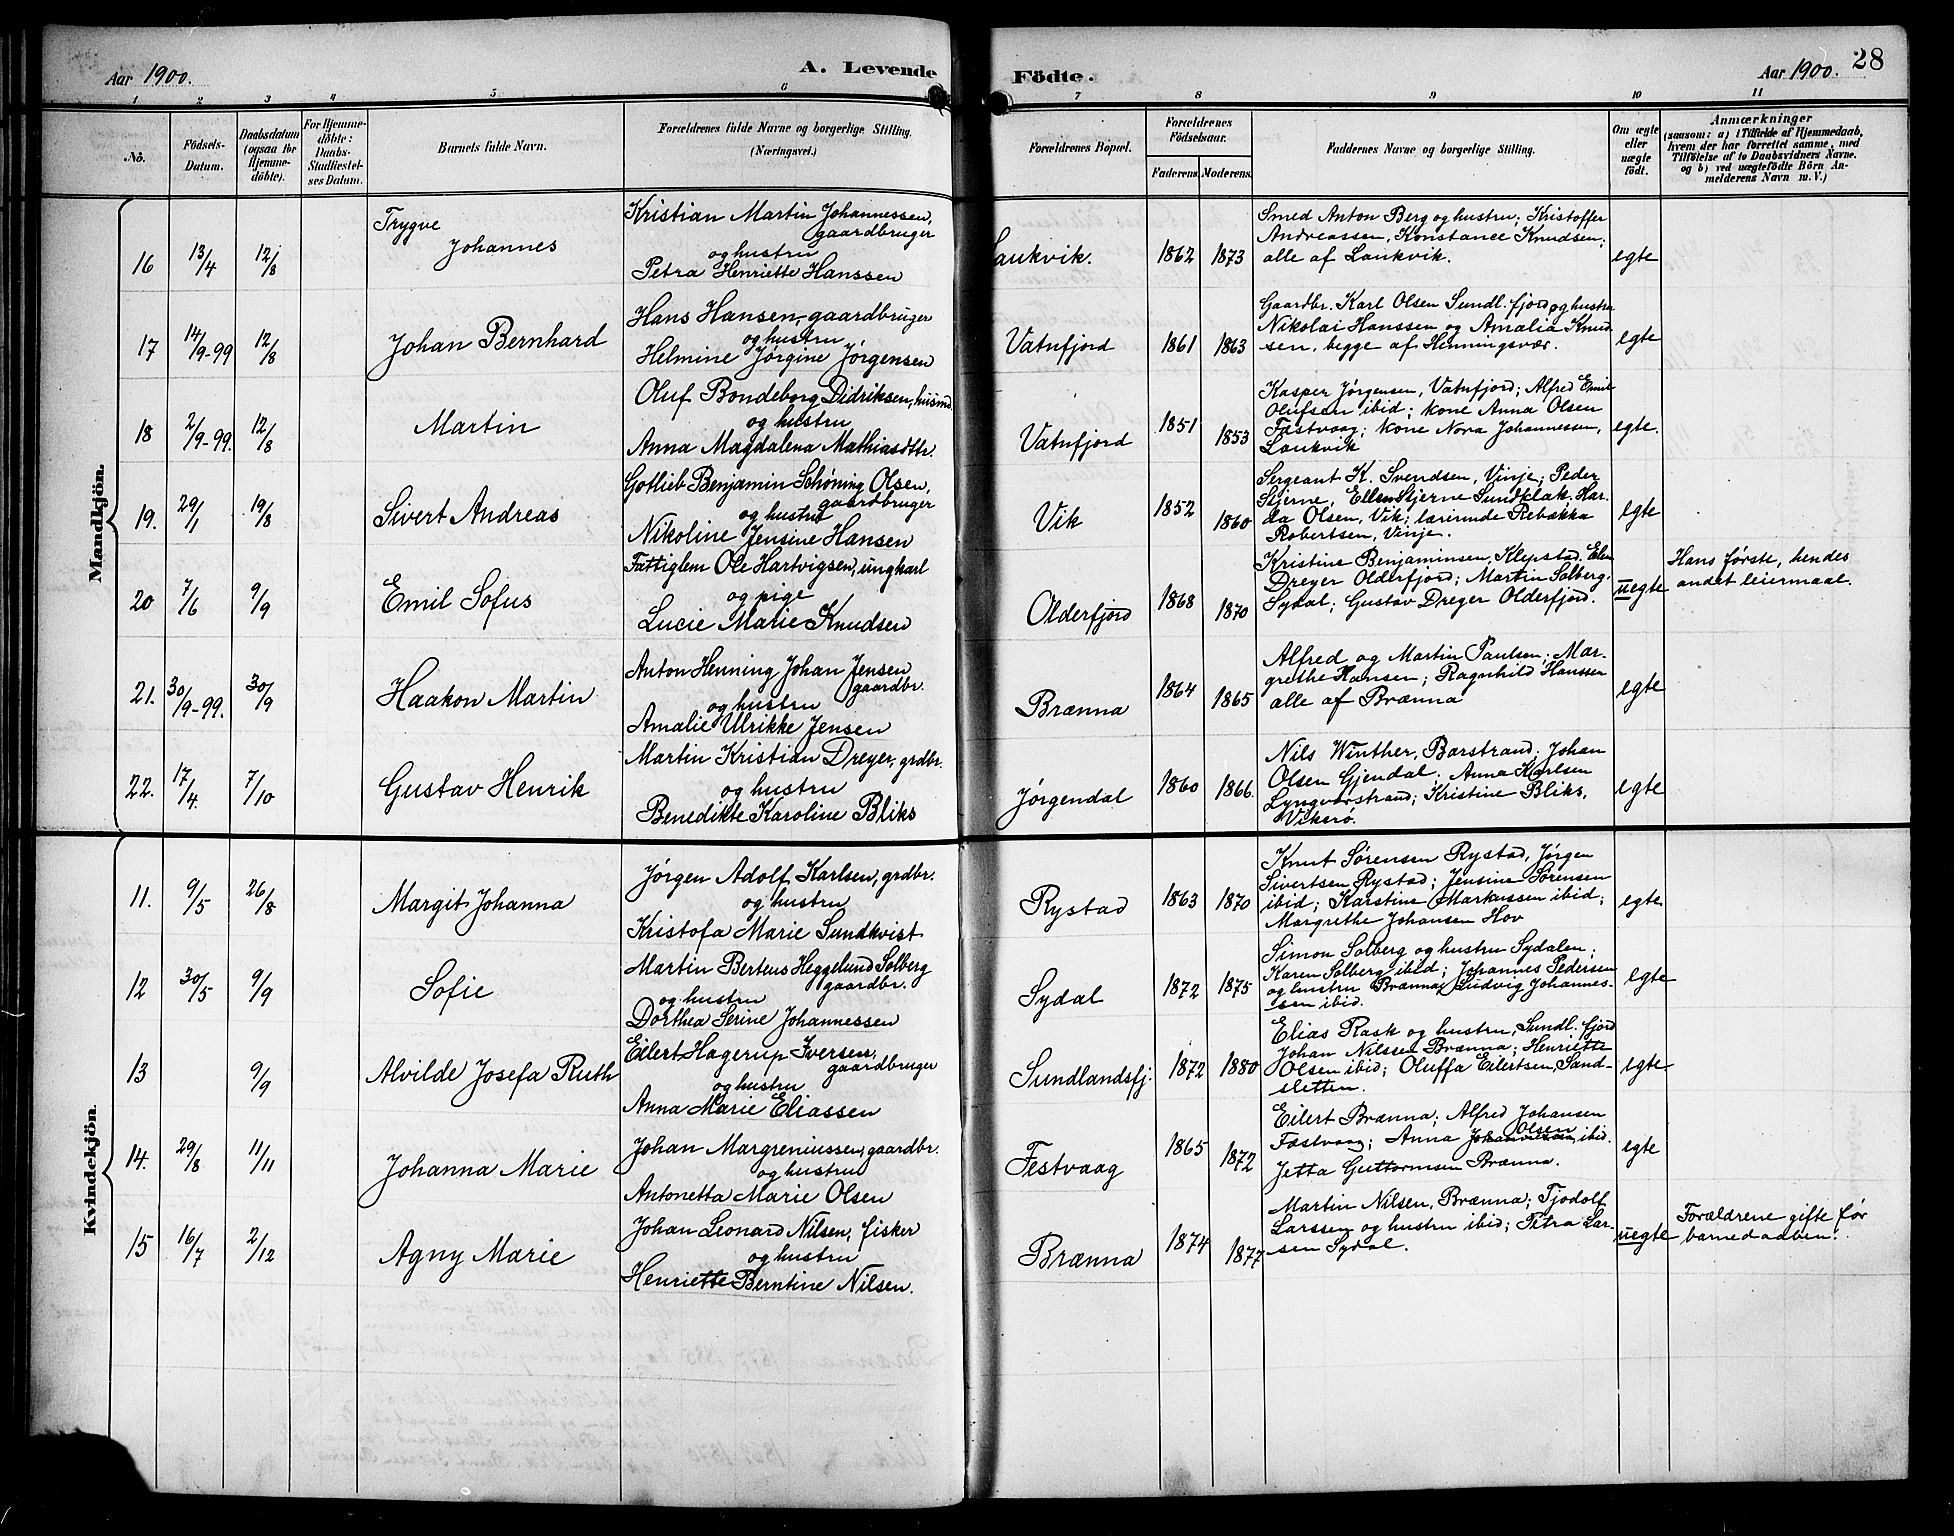 Aar 1900.
A. Levende
Födte.
Aar 1900.
28
1 2 3 4 5 6 7 8 9 10 11
No.
Födsels-
Datum.
Daabsdatum
(ogsaa for
Hjemme-
döbte).
For Hjemme-
döbte:
Daabs-
Stadfæstel-
ses Datum.
Barnets fulde Navn.
Forældrenes fulde Navne og borgerlige Stilling.
(Næringsvei.)
Forældrenes Bopæl.
Forældrenes
Födselsaar.
Faderens.
Moderens.
Faddernes Navne og borgerlige Stilling.
Om ægte
eller
uægte
födt.
Anmærkninger
(saasom: a) i Tilfælde af Hjemmedaab,
hvem der har forrettet samme, med
Tilföielse af to Daabsvidners Navne.
og b) ved uægtefödte Börn An-
melderens Navn m. V.)
Mandkjön.
16
13/4
12/8
Trygve
Johannes
Kristian Martin Johannessen,
gaardbruger
og hustru
Petra Henriette Hanssen
Laukvik.
1862
1873
Smed Anton Berg og hustru; Kristoffer
Andreassen, Konstance Knudsen,
alle af Laukvik.
egte
17
14/9-99
12/8
Johan Bernhard
Hans Hansen, gaardbruger
og hustru
Helmine Jørgine Jørgensen
Vatnfjord
1861
1863
Gaardbr. Karl Olsen Sundl.fjord og hustru
Nikolai Hanssen og Amalia Knud
sen, begge af Henningsvær.
egte
18
2/9-99.
12/8
Martin
Oluf Bondeborg Didriksen, husmd
og hustru
Anna Magdalena Mathiasdttr.
Vatnfjord
1851
1853
Kasper Jørgensen, Vatnfjord; Alfred Emil
Olufsen ibid; kone Anna Olsen
Fæstvaag; kone Nora Johannessen,
Laukvik
egte.
19.
29/1
19/8
Sivert Andreas
Gotlieb Benjamin Schøning Olsen,
gaardbruger
og hustru
Nikoline Jensine Hansen
Vik
1852
1860
Sergeant K. Svendsen, Vinje; Peder
Stjerne, Ellen Stjerne Sundklak. Har-
da Olsen, Vik; lærerinde Rebækka
Robertsen, Vinje.
egte
20
7/6
9/9
Emil Sofus
Fattiglem Ole Hartvigsen, ungkarl
og pige
Lucie Marie Knudsen
Olderfjord
1868
1870
Kristine Benjaminsen, Klepstad. Elen
Dreyer Olderfjord; Martin Solberg.
Sydal; Gustav Dreyer Olderfjord.
uegte
Hans første, hendes
andet leiermaal.
21.
30/9-99.
30/9
Haakon Martin
Anton Henning Johan Jensen
gaardbr.
og hustru
Amalie Ulrikke Jensen
Brænna
1864
1865
Alfred og Martin Paulsen; Mar-
grethe Hansen; Ragnhild Hanssen
alle af Brænna
egte
22.
17/4.
7/10
Gustav Henrik
Martin Kristian Dreyer, grdbr.
og hustru
Benedikte Karoline Bliks
Jørgendal
1860
1866
Nils Winther, Barstrand; Johan
Olsen Gjendal. Anna Karlsen
Lyngværstrand; Kristine Bliks,
Vikerø.
egte
Kvindekjön.
11.
9/5
26/8
Margit Johanna
Jørgen Adolf Karlsen, grdbr.
og hustru
Kristofa Marie Sundkvist
Rystad
1863
1870
Knut Sørensen Rystad, Jørgen
Sivertsen Rystad; Jensine Sørensen
ibid; Karstine Markussen ibid;
Margrethe Johansen Hov
egte
12
30/5
9/9
Sofie
Martin Berteus Heggelund Solberg
gaardbr.
og hustru
Dorthea Serine Johannessen
Sydal
1872
1875
Simon Solberg og hustru Sydalen;
Karen Solberg ibid; Johannes Pedersen
og hustru Brænna; Ludvig Johannes-
sen ibid.
egte
13
9/9
Alvilde Josefa Ruth
Eilert Hagerup Iversen,
gaardbruger
og hustru
Anna Marie Eliassen
Sundlandsfj.
1872
1880
Elias Rask og hustru, Sundl.fjord
Johan Nilssen Brænna; Henriette
Olsen ibid; Oluffa Eilertsen, Sand-
sletten.
egte
14.
29/8
11/11
Johanna Marie
Johan Margreniussen, gaardbr.
og hustru
Antonetta Marie Olsen
Festvaag
1865
1872
Eilert Brænna; Alfred Johansen
Olsen
Fæstvaag; Anna ibid.
Jetta Guttormsen Brænna.
egte
15
16/7
2/12
Agny Marie
Johan Leonard Nilsen, fisker
og hustru
Henriette Berntine Nilsen.
Brænna
1874
1877
Martin Nilsen, Brænna; Tjodolf
Larssen og hustru ibid; Petra Lar-
sen Sydal.
uegte
Forældrene gifte før
barnedaaben.